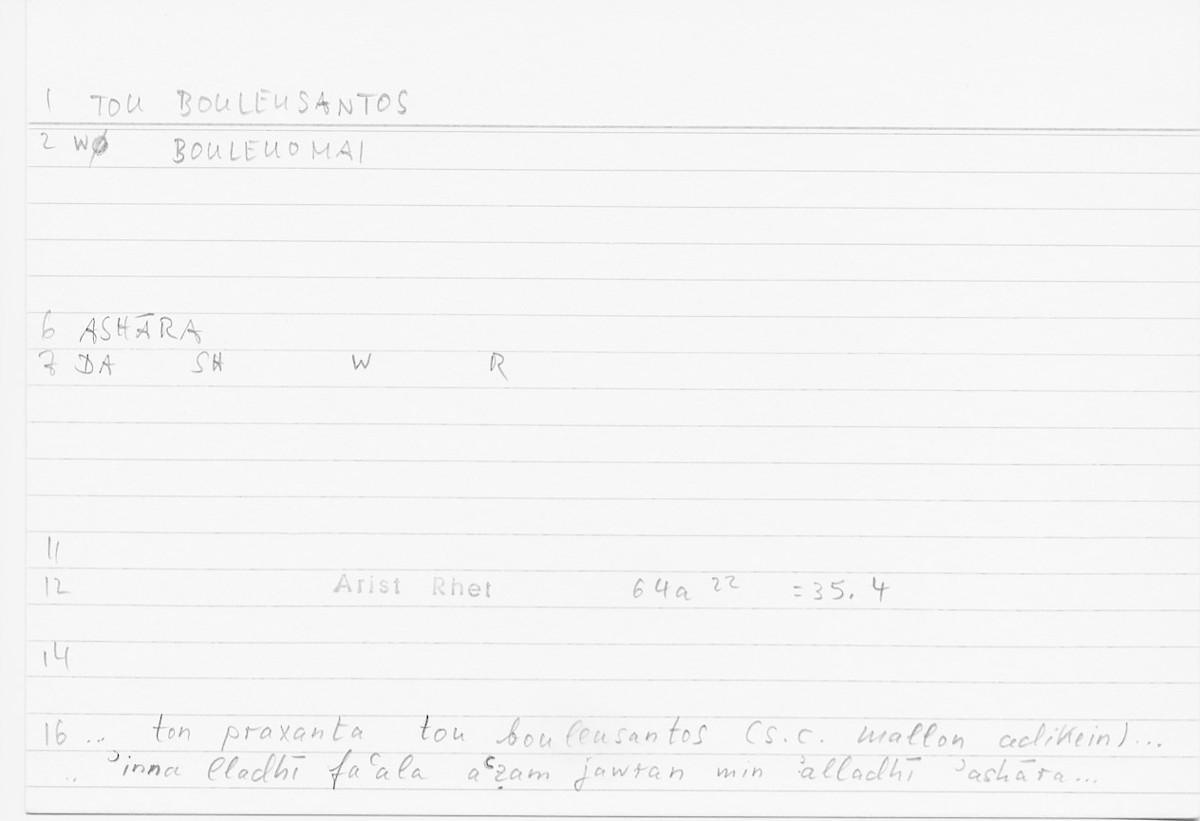 1 TOU BOULEUSANTOS
2 WØ BOULEUOMAI
6 ASHĀRA
7 DA SH W R
11
12 Arist Rhet 64a 22 = 35. 4
14
16 .. ton praxanta tou bouleusantos (s.c. mallon adikein)...
.. ʾinna lladhī faʿala aʿẓam jawran min ʾalladhī ʾashāra...